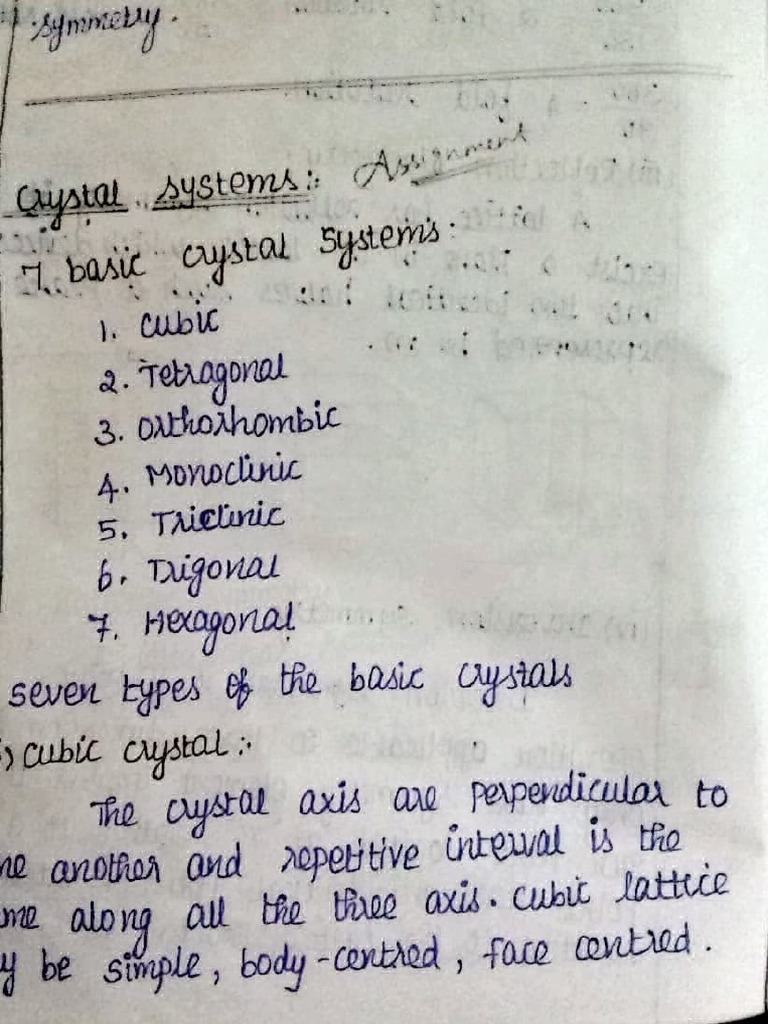 symmetry.
Crystal systems:- Assignment
7. basic crystal systems:
1. cubic
2. Tetragonal
3. Orthorhombic
4. Monoclinic
5. Triclinic
6. Trigonal
7. Hexagonal
seven types of the basic crystals
) cubic crystal:-
The crystal axis are perpendicular to
ne another and repetitive interval is the
me along all the three axis. cubic lattice
y be simple, body-centred, face centred.